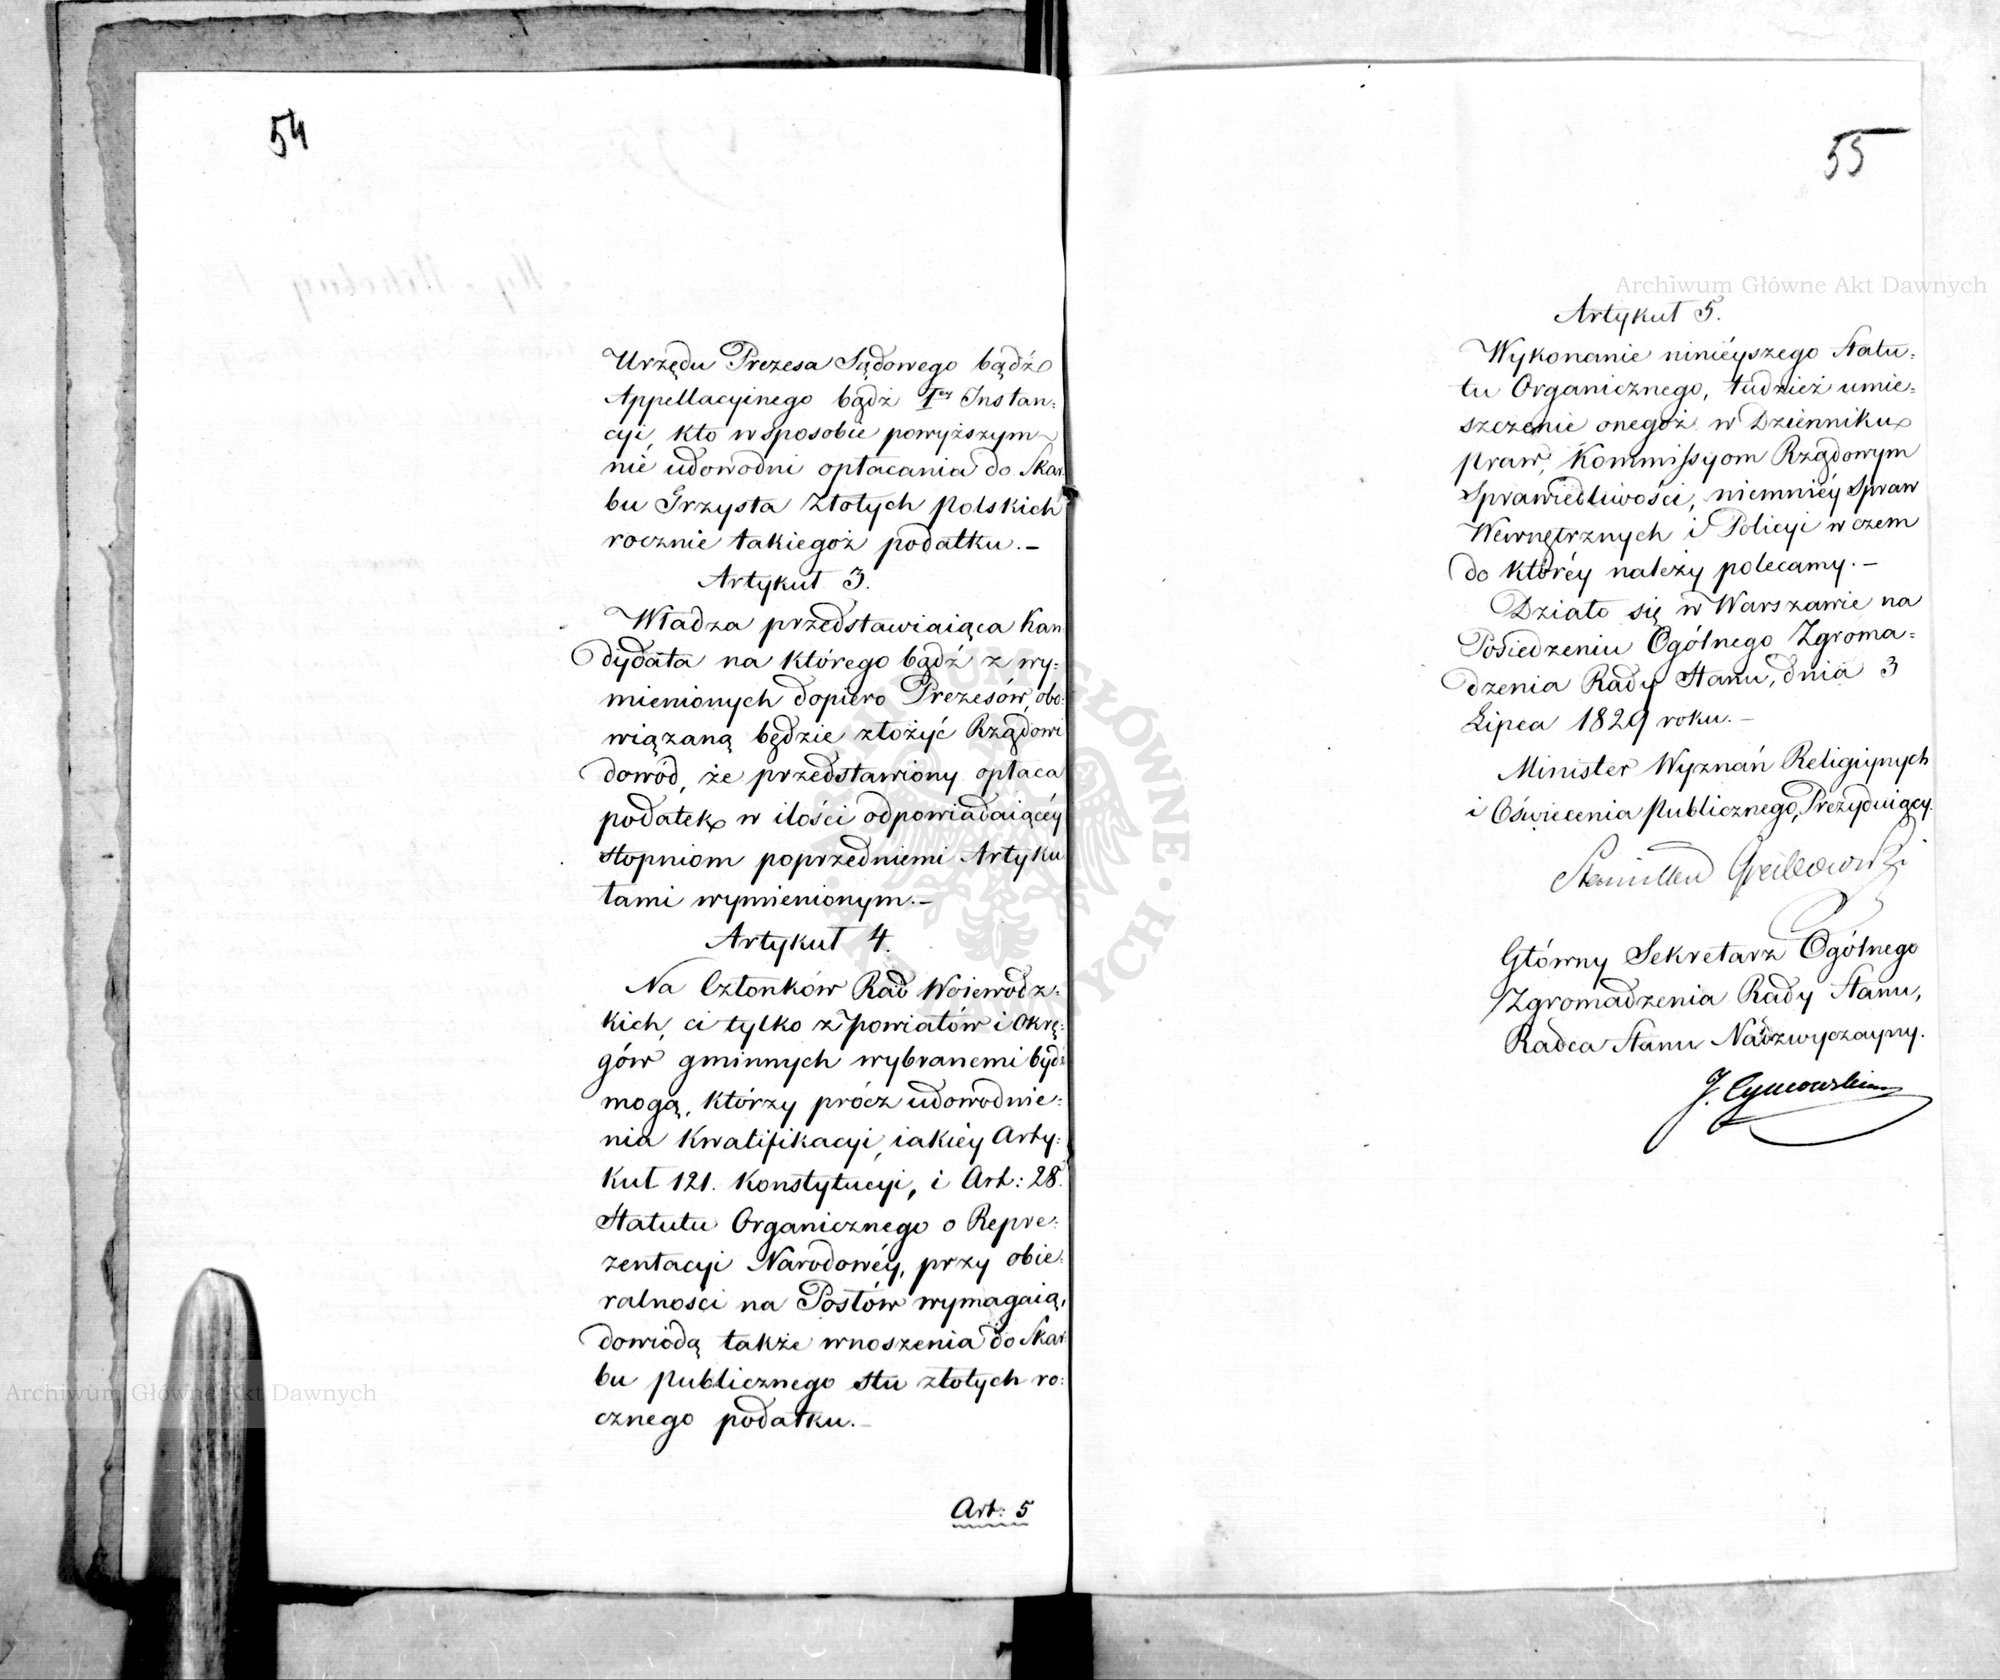 54
Urzędu Prezesa Sądowego bądź
Appellacyinego bądź Iey Instan:
cyi, kto w sposobie powyższym
nie udowodni opłacania do Skar
bu Trzysta Złotych polskich
rocznie takiegoż podatku.–
Artykuł 3.
Władza przedstawiaiąca Kan
dydata na którego bądź z wy:
mienionych dopiero Prezesów, obo:
wiązaną będzie złożyć Rządowi
dowód, że przedstawiony opłaca
podatek w ilości odpowiadaiącéy
stopniom poprzedniemi Artyku
łami wymienionym.–
Artykuł 4.
Na Członków Rad Woiewódz:
kich, ci tylko z powiatów i Okrę:
gów gminnych wybranemi bydź
mogą, którzy prócz udowodnie:
nia kwalifikacyi, iakiéy Arty:
kuł 121. Konstytucyi, i Art: 28.
Statutu Organicznego o Repre:
zentacyi Narodowéy, przy obie:
ralności na Posłów wymagaią,
dowiodą także wnoszenia do Skar
bu publicznego stu złotych ro:
cznego podatku.–
Art: 5
55
Artykuł 5.
Wykonanie ninieyszego Statu:
tu Organicznego, tudzież umie:
szczenie onegoż w Dzienniku
praw, Kommissyom Rządowym
Sprawiedliwości, niemniéy Spraw
Wewnętrznych i Policyi w czem
do któréy należy polecamy.–
Działo się w Warszawie na
Posiedzeniu Ogólnego Zgroma:
dzenia Rady Stanu, dnia 3
Lipca 1829 roku.–
Minister Wyznań Religiynych
i Oświecenia Publicznego, Prezyduiący.
Główny Sekretarz Ogólnego
Zgromadzenia Rady Stanu,
Radca Stanu Nadzwyczayny.
J.
Archiwum Główne Akt Dawnych
Archiwum Główne Akt Dawnych
ARCHIWUM GŁÓWNE AKT DAWNYCH